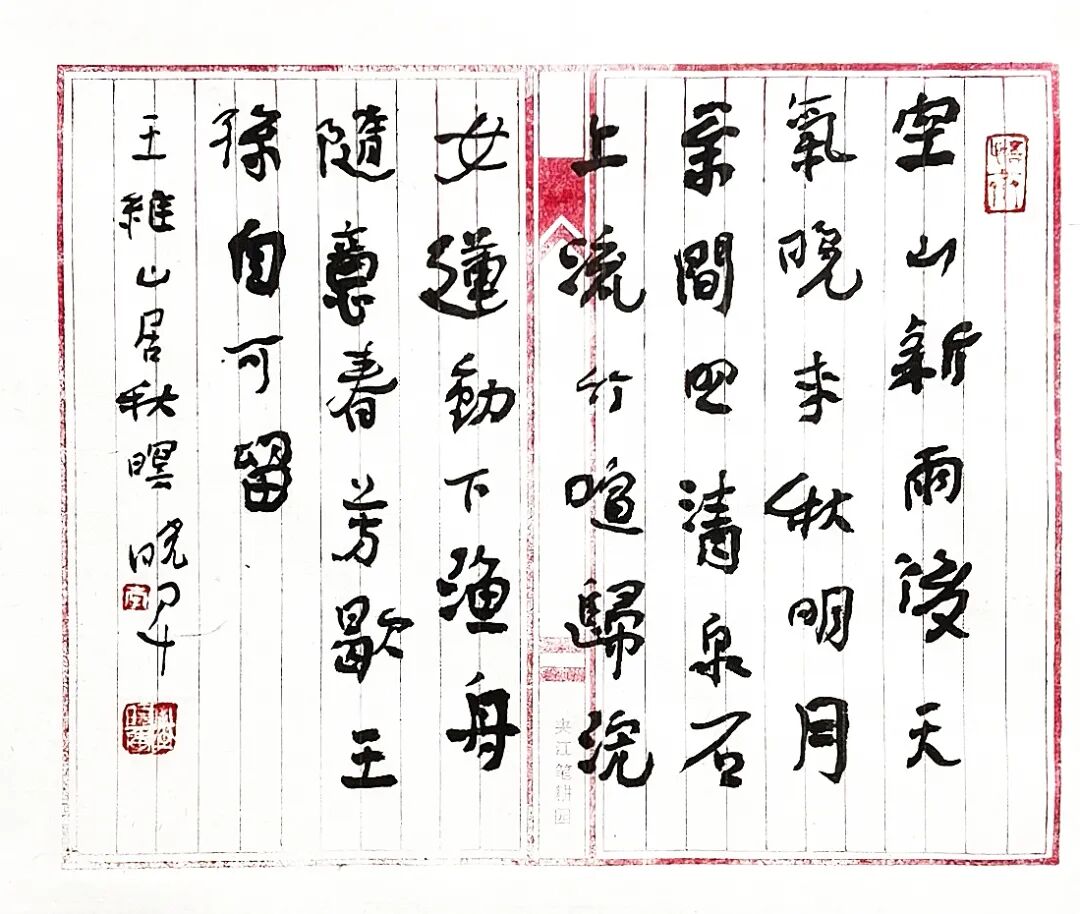 空山新雨後天
氣晚来秋明月
松間照清泉石
上流竹喧歸浣
女蓮動下漁舟
隨意春芳歇王
孫自可留
王維山居秋暝
夹江笔耕园